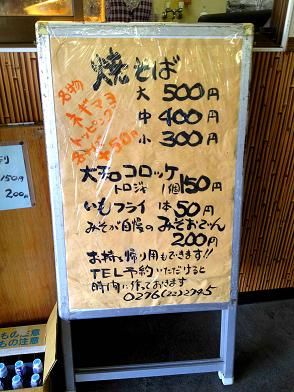 焼そば
大 500円
中 400円
小 300円
名物
ネギマヨ
トッピング
各一 +50円
大和コロッケ
1個150円
いもフライ 1本50円
みそが自慢のみそおでん
200円
お持ち帰り用もできます!!
TEL予約いただけると
時間に作っておきます
0276(22)2745
150円
200円
もの注意